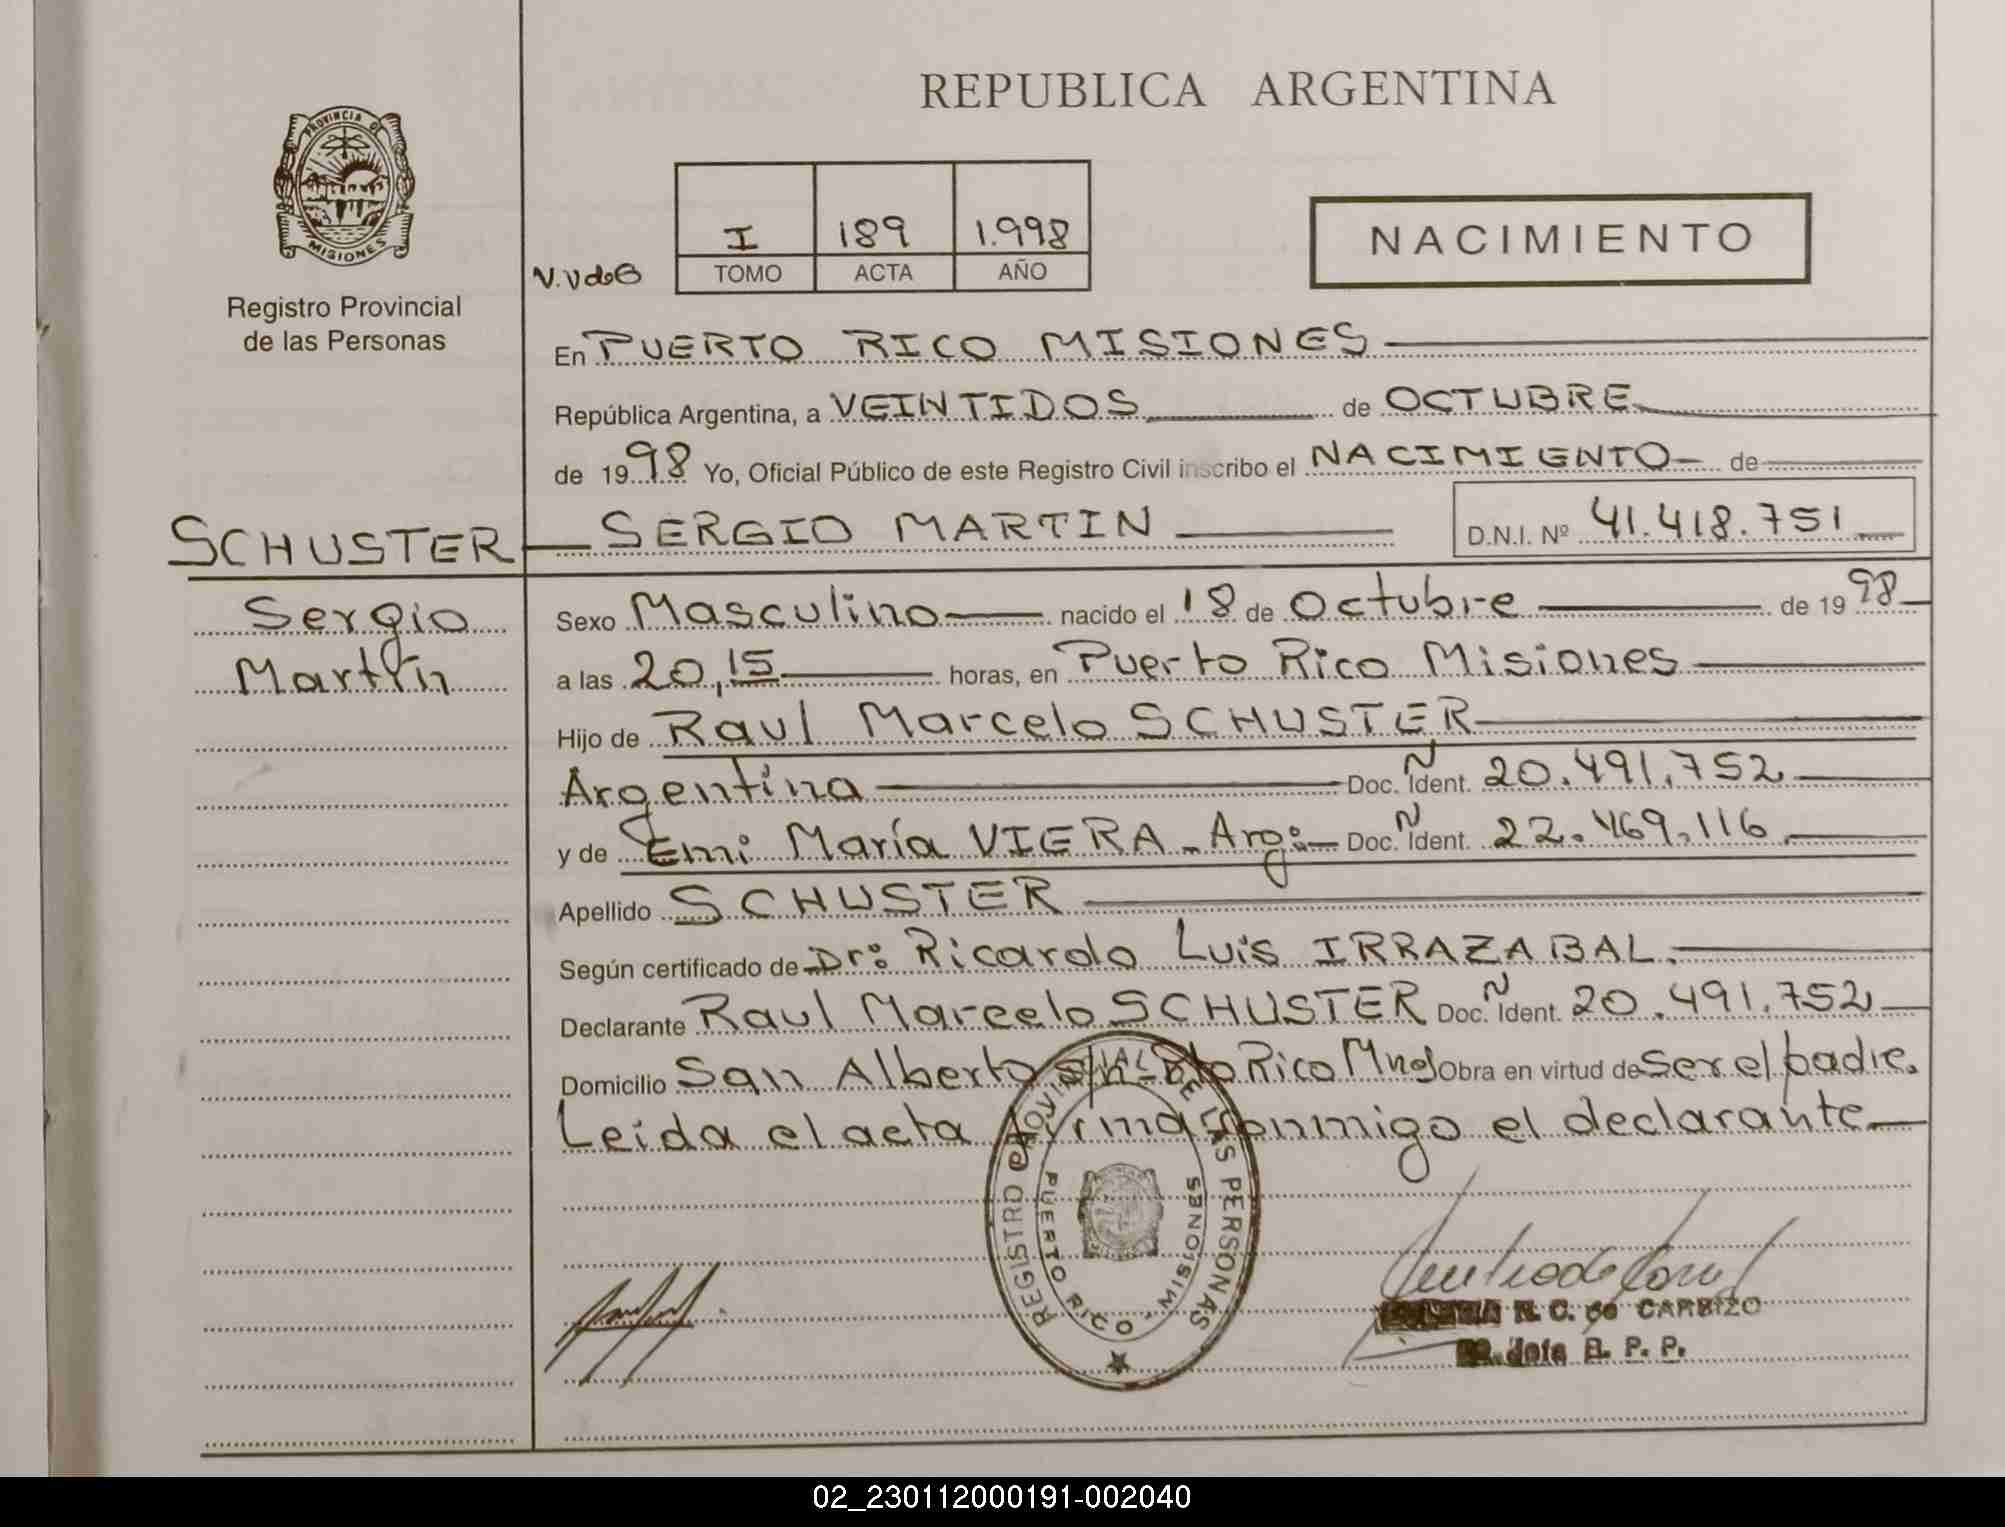 REPUBLICA ARGENTINA
PROVINCIA DE
MISIONES
Registro Provincial
de las Personas
I 189 1.998
TOMO ACTA AÑO
NACIMIENTO
En PUERTO RICO MISIONES
República Argentina, a VEINTIDOS de OCTUBRE
de 1998 Yo, Oficial Público de este Registro Civil inscribo el NACIMIENTO de
SCHUSTER SERGIO MARTIN D.N.I. Nº 41.418.751
Sergio
Martín
Sexo Masculino nacido el 18 de Octubre de 1998
a las 20,15 horas, en Puerto Rico Misiones
Hijo de Raul Marcelo SCHUSTER
Argentina Doc. N Ident. 20.491.752
y de Emi María VIERA - Arg: Doc. N Ident. 22.469.116
Apellido SCHUSTER
Según certificado de Dr: Ricardo Luis IRRAZABAL.
Declarante Raul Marcelo SCHUSTER Doc. N Ident. 20.491.752
Domicilio San Alberto s/n - Pto Rico Mnes Obra en virtud de ser el padre.
Leida el acta firma conmigo el declarante
REGISTRO PROVINCIAL DE LAS PERSONAS
PUERTO RICO - MISIONES
N. C. de CARBIZO
R. P. P.
02_230112000191-002040